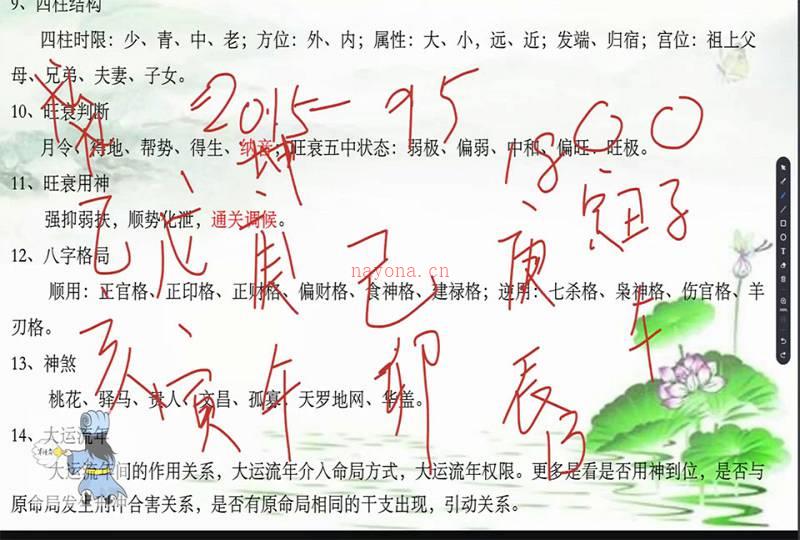 9、四柱结构
四柱时限：少、青、中、老；方位：外、内；属性：大、小，远、近；发端、归宿；宫位：祖上父
母、兄弟、夫妻、子女。
10、旺衰判断
月令、得地、帮势、得生、纳音，旺衰五中状态：弱极、偏弱、中和、偏旺、旺极。
11、旺衰用神
强抑弱扶，顺势化泄，通关调候。
12、八字格局
顺用：正官格、正印格、正财格、偏财格、食神格、建禄格；逆用：七杀格、枭神格、伤官格、羊
刃格。
13、神煞
桃花、驿马、贵人、文昌、孤寡、天罗地网、华盖。
14、大运流年
大运流年间的作用关系，大运流年介入命局方式，大运流年权限。更多是看是否用神到位，是否与
原命局发生刑冲合害关系，是否有原命局相同的干支出现，引动关系。
2015 - 95
坤
1800
寅丑子
己 庚 己 庚
午
亥 寅 午 卯 辰
13
nayona.cn